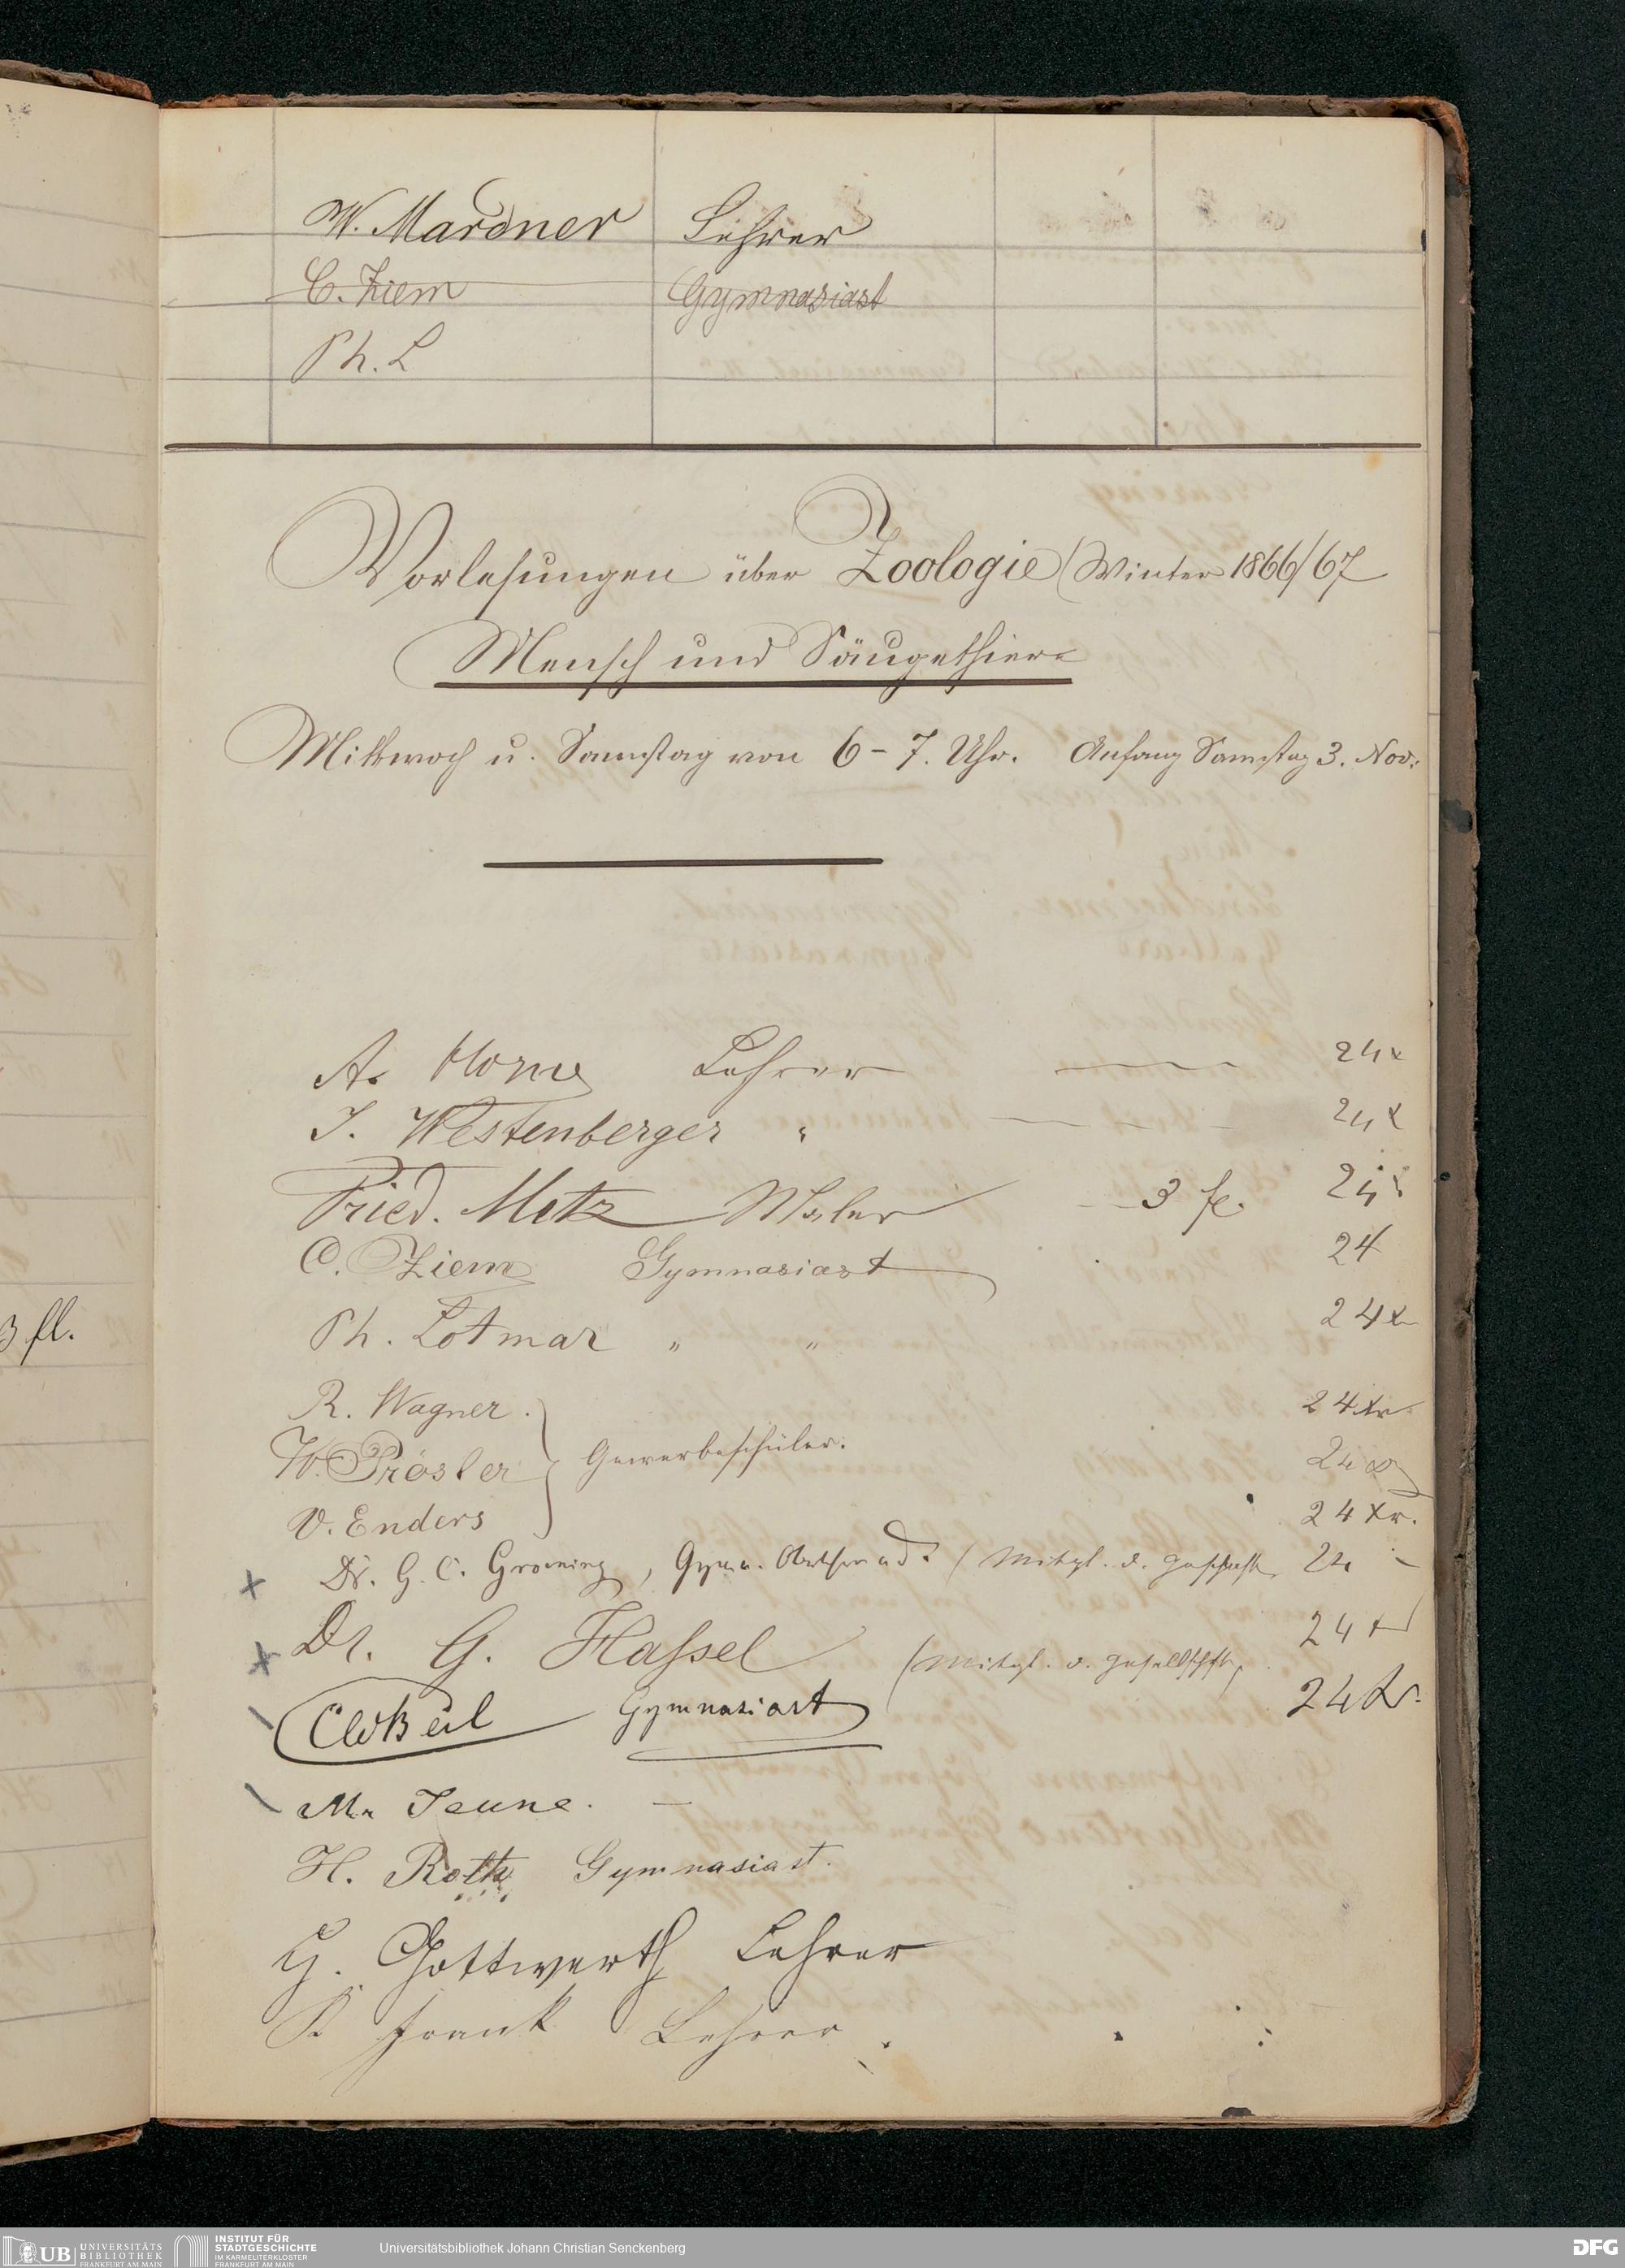 W. Mardner Lehrer
C. Ziem Gymnasiast
Ph. L
Vorlesungen über Zoologie (Winter 1866/67
Mensch und Säugethiere
Mittwoch u. Samstag von 6-7. Uhr. Anfang Samstag 3. Nov.
A. Horne Lehrer 24x
J. Westenberger " 24x
Fried. Metz Maler 3 fl. 24x
C. Ziem Gymnasiast 24
Ph. Lotmar " " 24x
R. Wagner. 24xr
W. Prösler Gewerbeschüler. 24
V. Enders 24 xr.
Dr. G. C. Groening, Gymn. (Mitgl. d. 24
Dr. G. Hassel (Mitgl. d. Gesellschft, 24 x
Gymnasiast 24 Kr.
Mr. Jeune. —
H. Roth Gymnasiast.
G. Gottwerth Lehrer
K Frank Lehrer.
3 fl.
UB UNIVERSITÄTS
BIBLIOTHEK
FRANKFURT AM MAIN
INSTITUT FÜR
STADTGESCHICHTE
IM KARMELITERKLOSTER
FRANKFURT AM MAIN
Universitätsbibliothek Johann Christian Senckenberg
DFG